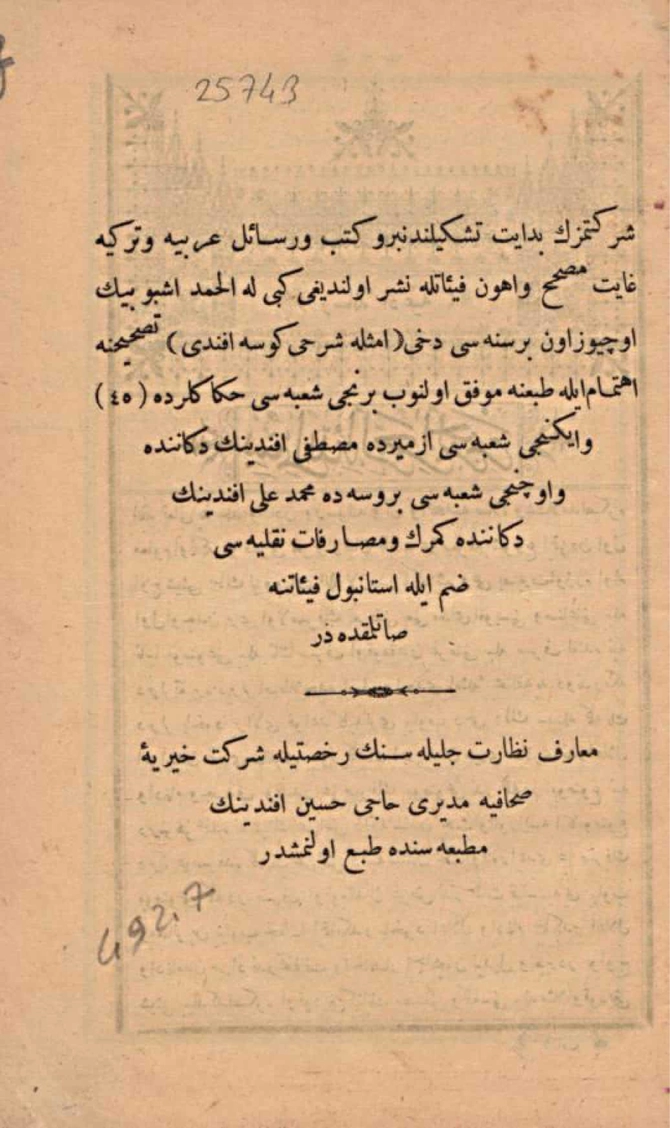 25743
شركتمزك بدايت تشكيلندنبرو كتب ورسائل عربيه وتركيه
غايت مصحح واهون فيئاتله نشر اولنديغى كبى له الحمد اشبو بيك
اوچيوز اون برسنه سى دخى (امثله شرحى كوسه افندى) تصحيحنه
اهتمام ايله طبعنه موفق اولنوب برنجى شعبه سى حكاكلرده (٤٥)
وايكنجى شعبه سى ازميرده مصطفى افندينك دكاننده
واوچنجى شعبه سى بروسه ده محمد على افندينك
دكاننده كمرك ومصارفات نقليه سى
ضم ايله استانبول فيئاتنه
صاتلمقده در
معارف نظارت جليله سنك رخصتيله شركت خيريۀ
صحافيه مديرى حاجى حسين افندينك
مطبعه سنده طبع اولنمشدر
492.7